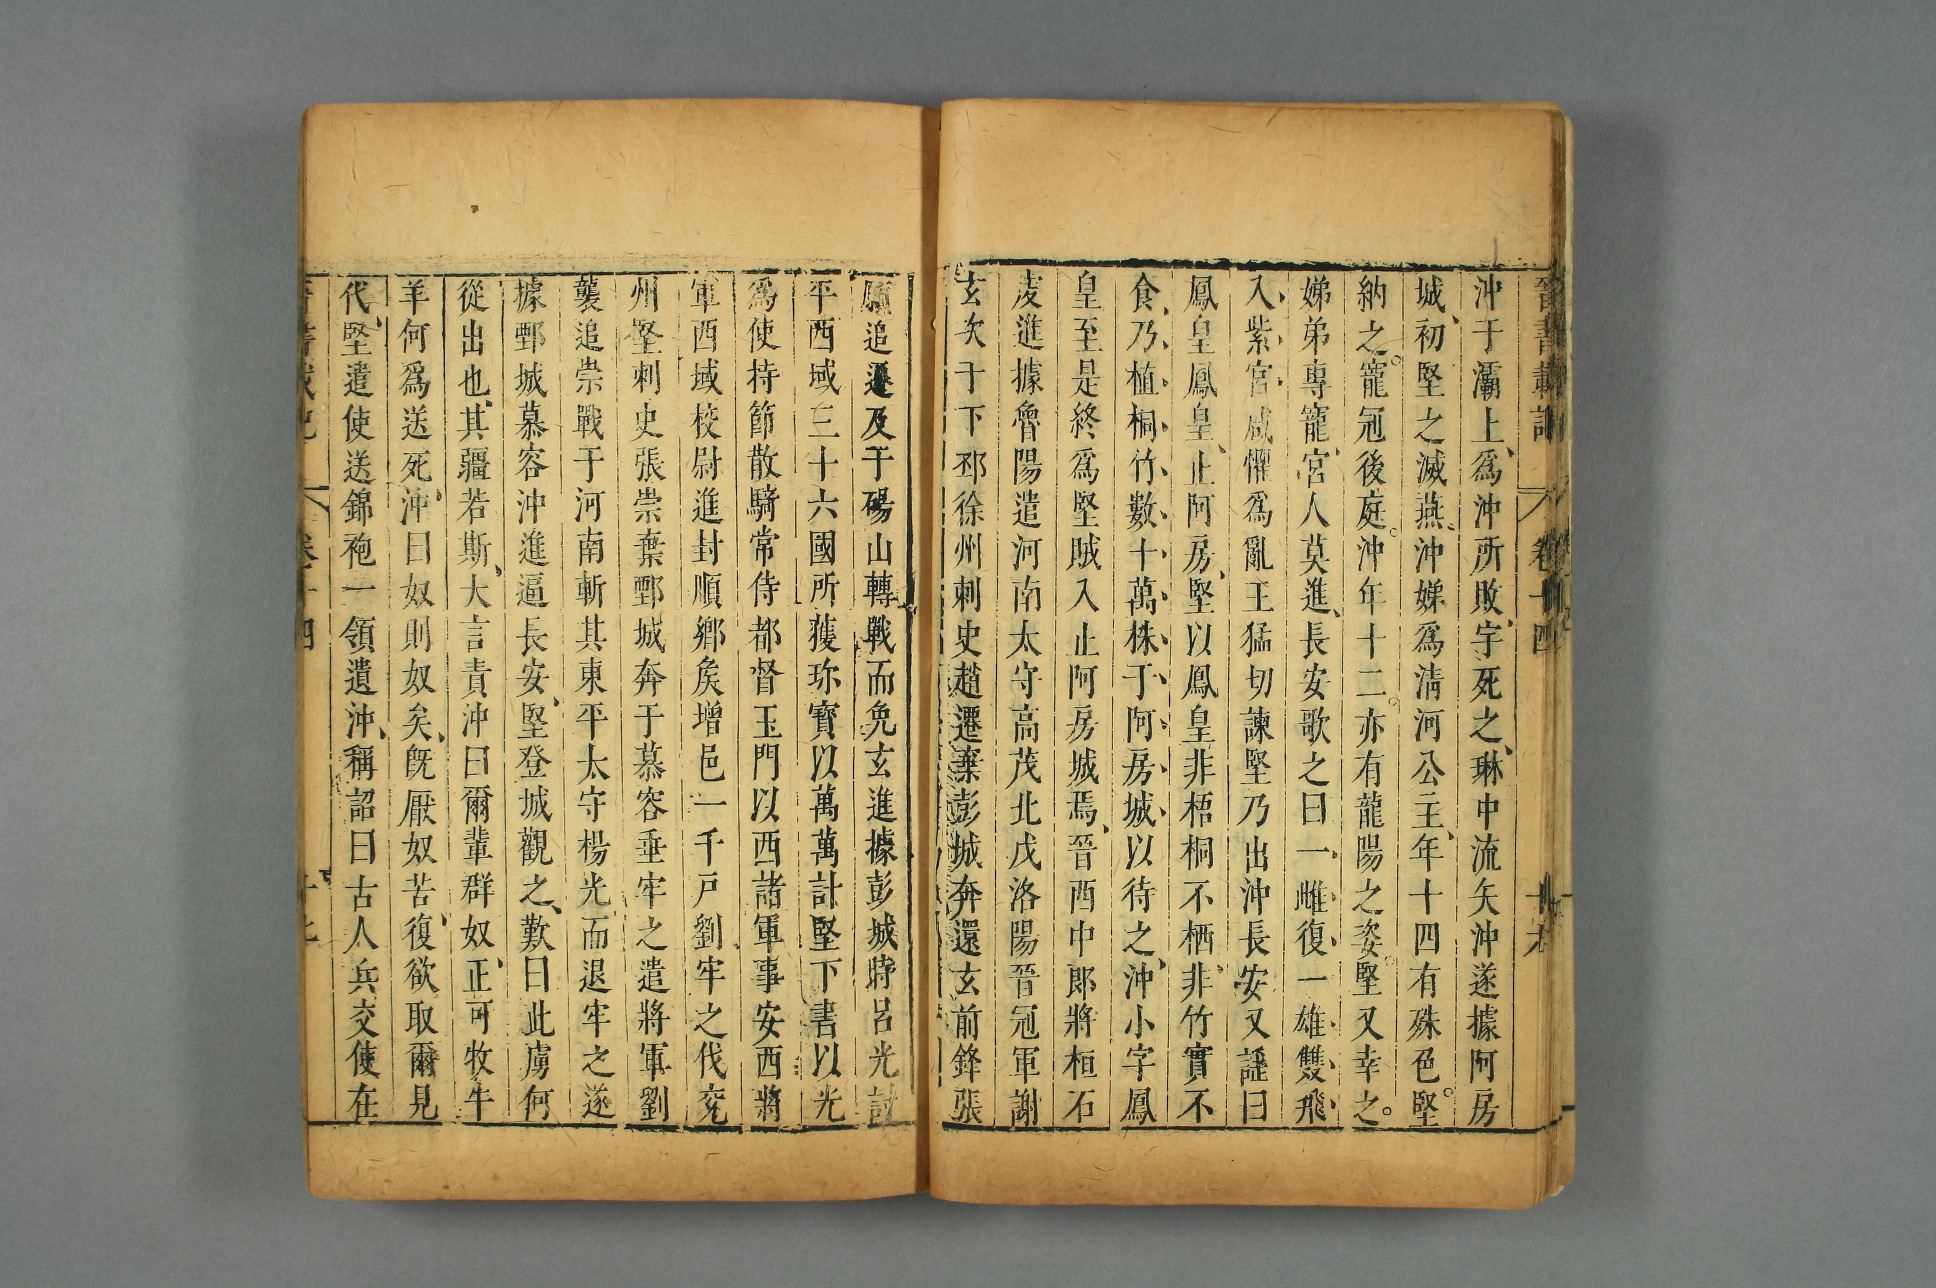 晉書載記 卷十四 十六
沖于灞上、爲沖所敗、宇死之、琳中流矢沖遂據阿房
城、初堅之滅燕、沖娣爲淸河公主、年十四有殊色。堅
納之。寵冠後庭。沖年十二。亦有龍陽之姿。堅又幸之。
娣弟專寵、宮人莫進、長安歌之曰一雌復一雄雙飛
入紫宮咸懼爲亂王猛切諫堅乃出沖長安又謡曰
鳳皇鳳皇、止阿房、堅以鳳皇非梧桐不栖非竹實不
食、乃植桐竹數十萬株于阿房城以待之、沖小字鳳
皇至是終爲堅賊入止阿房城焉、晉西中郎將桓石
虔進據魯陽遣河南太守高茂北戍洛陽晉冠軍謝
玄次于下邳徐州刺史趙遷棄彭城奔還玄前鋒張
願追遷及于碭山轉戰而免玄進據彭城時呂光討
平西域三十六國所獲珍寶以萬萬計堅下書以光
爲使持節散騎常侍都督玉門以西諸軍事安西將
軍西域校尉進封順鄉矦增邑一千戸劉牢之伐兖
州堅刺史張崇棄鄄城奔于慕容垂牢之遣將軍劉
襲追崇戰于河南斬其東平太守楊光而退牢之遂
據鄄城慕容沖進逼長安、堅登城觀之、歎曰此虜何
從出也、其疆若斯、大言責沖曰爾輩群奴、正可牧牛
羊何爲送死、沖曰奴則奴矣、旣厭奴苦、復欲取爾見
代、堅遣使送錦袍一領遺沖、稱詔曰古人兵交使在